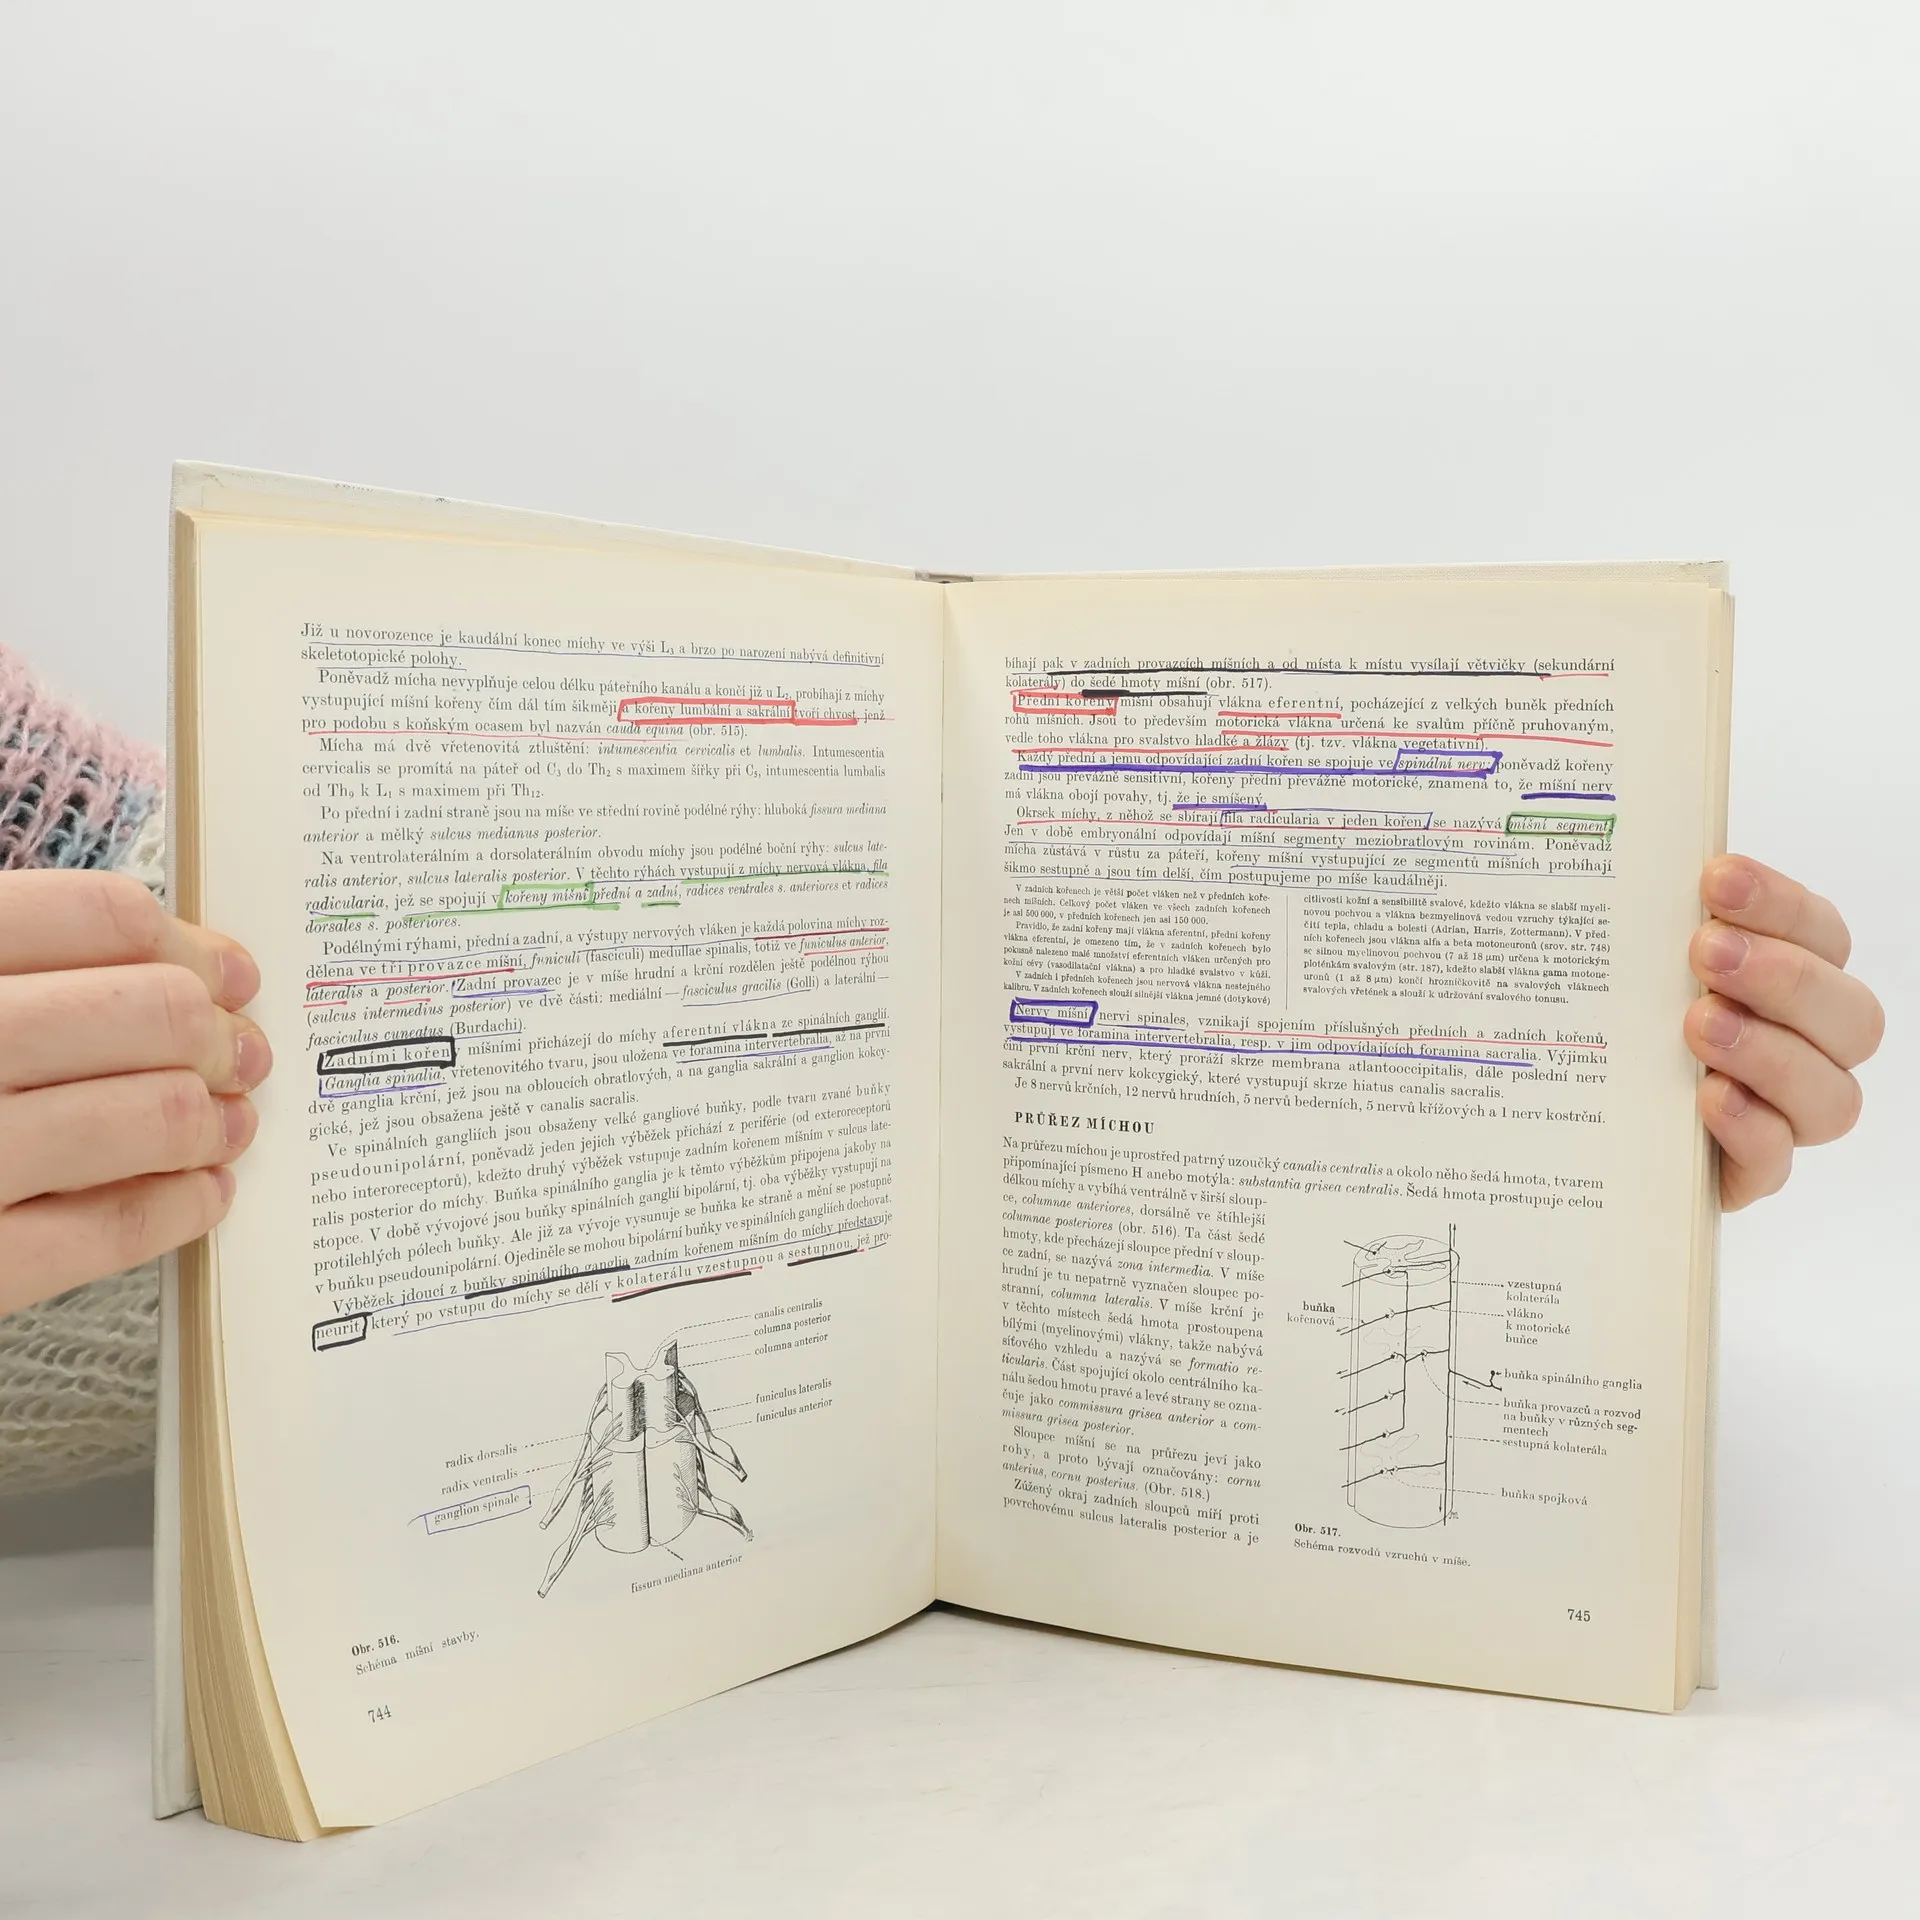 Již u novorozence je kaudální konec míchy ve výši L₃ a brzo po narození nabývá definitivní
skeletotopické polohy.
Poněvadž mícha nevyplňuje celou délku páteřního kanálu a končí již u L₂, probíhají z míchy
vystupující míšní kořeny čím dál tím šikměji a kořeny lumbální a sakrální tvoří chvost, jenž
pro podobu s koňským ocasem byl nazván cauda equina (obr. 515).
Mícha má dvě vřetenovitá ztluštění: intumescentia cervicalis et lumbalis. Intumescentia
cervicalis se promítá na páteř od C₃ do Th₂ s maximem šířky při C₅, intumescentia lumbalis
od Th₉ k L₁ s maximem při Th₁₂.
Po přední i zadní straně jsou na míše ve střední rovině podélné rýhy: hluboká fissura mediana
anterior a mělký sulcus medianus posterior.
Na ventrolaterálním a dorsolaterálním obvodu míchy jsou podélné boční rýhy: sulcus late-
ralis anterior, sulcus lateralis posterior. V těchto rýhách vystupují z míchy nervová vlákna, fila
radicularia, jež se spojují v kořeny míšní přední a zadní, radices ventrales s. anteriores et radices
dorsales s. posteriores.
Podélnými rýhami, přední a zadní, a výstupy nervových vláken je každá polovina míchy roz-
dělena ve tři provazce míšní, funiculi (fasciculi) medullae spinalis, totiž ve funiculus anterior,
lateralis a posterior. Zadní provazec je v míše hrudní a krční rozdělen ještě podélnou rýhou
(sulcus intermedius posterior) ve dvě části: mediální — fasciculus gracilis (Golli) a laterální —
fasciculus cuneatus (Burdachi).
Zadními kořeny míšními přicházejí do míchy aferentní vlákna ze spinálních ganglií.
Ganglia spinalia, vřetenovitého tvaru, jsou uložena ve foramina intervertebralia, až na první
dvě ganglia krční, jež jsou na obloucích obratlových, a na ganglia sakrální a ganglion kokcy-
gické, jež jsou obsažena ještě v canalis sacralis.
Ve spinálních gangliích jsou obsaženy velké gangliové buňky, podle tvaru zvané buňky
pseudounipolární, poněvadž jeden jejich výběžek přichází z periférie (od exteroreceptorů
nebo interoreceptorů), kdežto druhý výběžek vstupuje zadním kořenem míšním v sulcus late-
ralis posterior do míchy. Buňka spinálního ganglia je k těmto výběžkům připojena jakoby na
stopce. V době vývojové jsou buňky spinálních ganglií bipolární, tj. oba výběžky vystupují na
protilehlých pólech buňky. Ale již za vývoje vysunuje se buňka ke straně a mění se postupně
v buňku pseudounipolární. Ojediněle se mohou bipolární buňky ve spinálních gangliích dochovat.
Výběžek jdoucí z buňky spinálního ganglia zadním kořenem míšním do míchy představuje
neurit, který po vstupu do míchy se dělí v kolaterálu vzestupnou a sestupnou, jež pro-
canalis centralis
columna posterior
columna anterior
funiculus lateralis
funiculus anterior
radix dorsalis
radix ventralis
ganglion spinale
fissura mediana anterior
Obr. 516.
Schéma míšní stavby.
744
bíhají pak v zadních provazcích míšních a od místa k místu vysílají větvičky (sekundární
kolaterály) do šedé hmoty míšní (obr. 517).
Přední kořeny míšní obsahují vlákna eferentní, pocházející z velkých buněk předních
rohů míšních. Jsou to především motorická vlákna určená ke svalům příčně pruhovaným,
vedle toho vlákna pro svalstvo hladké a žlázy (tj. tzv. vlákna vegetativní).
Každý přední a jemu odpovídající zadní kořen se spojuje ve spinální nerv; poněvadž kořeny
zadní jsou převážně sensitivní, kořeny přední převážně motorické, znamená to, že míšní nerv
má vlákna obojí povahy, tj. že je smíšený.
Okrsek míchy, z něhož se sbírají fila radicularia v jeden kořen, se nazývá míšní segment.
Jen v době embryonální odpovídají míšní segmenty meziobratlovým rovinám. Poněvadž
mícha zůstává v růstu za páteří, kořeny míšní vystupující ze segmentů míšních probíhají
šikmo sestupně a jsou tím delší, čím postupujeme po míše kaudálněji.
V zadních kořenech je větší počet vláken než v předních koře-
nech míšních. Celkový počet vláken ve všech zadních kořenech
je asi 500 000, v předních kořenech jen asi 150 000.
Pravidlo, že zadní kořeny mají vlákna aferentní, přední kořeny
vlákna eferentní, je omezeno tím, že v zadních kořenech bylo
pokusně nalezeno malé množství eferentních vláken určených pro
kožní cévy (vasodilatační vlákna) a pro hladké svalstvo v kůži.
V zadních i předních kořenech jsou nervová vlákna nestejného
kalibru. V zadních kořenech slouží silnější vlákna jemné (dotykové)
citlivosti kožní a sensibilitě svalové, kdežto vlákna se slabší myeli-
novou pochvou a vlákna bezmyelinová vedou vzruchy týkající se-
čití tepla, chladu a bolesti (Adrian, Harris, Zottermann). V před-
ních kořenech jsou vlákna alfa a beta motoneuronů (srov. str. 748)
se silnou myelinovou pochvou (7 až 18 μm) určená k motorickým
ploténkám svalovým (str. 187), kdežto slabší vlákna gama motone-
uronů (1 až 8 μm) končí hrozníčkovitě na svalových vláknech
svalových vřetének a slouží k udržování svalového tonusu.
Nervy míšní nervi spinales, vznikají spojením příslušných předních a zadních kořenů,
vystupují ve foramina intervertebralia, resp. v jim odpovídajících foramina sacralia. Výjimku
činí první krční nerv, který proráží skrze membrana atlantooccipitalis, dále poslední nerv
sakrální a první nerv kokcygický, které vystupují skrze hiatus canalis sacralis.
Je 8 nervů krčních, 12 nervů hrudních, 5 nervů bederních, 5 nervů křížových a 1 nerv kostrční.
PRŮŘEZ MÍCHOU
Na průřezu míchou je uprostřed patrný uzoučký canalis centralis a okolo něho šedá hmota, tvarem
připomínající písmeno H anebo motýla: substantia grisea centralis. Šedá hmota prostupuje celou
délkou míchy a vybíhá ventrálně v širší sloup-
ce, columnae anteriores, dorsálně ve štíhlejší
columnae posteriores (obr. 516). Ta část šedé
hmoty, kde přecházejí sloupce přední v sloup-
ce zadní, se nazývá zona intermedia. V míše
hrudní je tu nepatrně vyznačen sloupec po-
stranní, columna lateralis. V míše krční je
v těchto místech šedá hmota prostoupena
bílými (myelinovými) vlákny, takže nabývá
síťového vzhledu a nazývá se formatio re-
ticularis. Část spojující okolo centrálního ka-
nálu šedou hmotu pravé a levé strany se ozna-
čuje jako commissura grisea anterior a com-
missura grisea posterior.
Sloupce míšní se na průřezu jeví jako
rohy, a proto bývají označovány: cornu
anterius, cornu posterius. (Obr. 518.)
Zúžený okraj zadních sloupců míří proti
povrchovému sulcus lateralis posterior a je
buňka
kořenová
vzestupná
kolaterála
vlákno
k motorické
buňce
buňka spinálního ganglia
buňka provazců a rozvod
na buňky v různých seg-
mentech
sestupná kolaterála
buňka spojková
Obr. 517.
Schéma rozvodů vzruchů v míše.
745